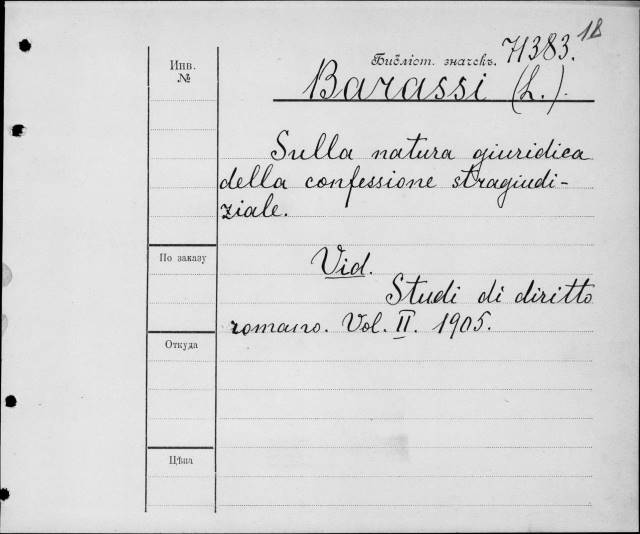 18
Библіот. значекъ. 71383.
Инв.
№
Barassi (L.).
Sulla natura giuridica
della confessione stragiudi-
ziale.
По заказу
Vid.
Studi di diritto
romano. Vol. II. 1905.
Откуда
Цѣна